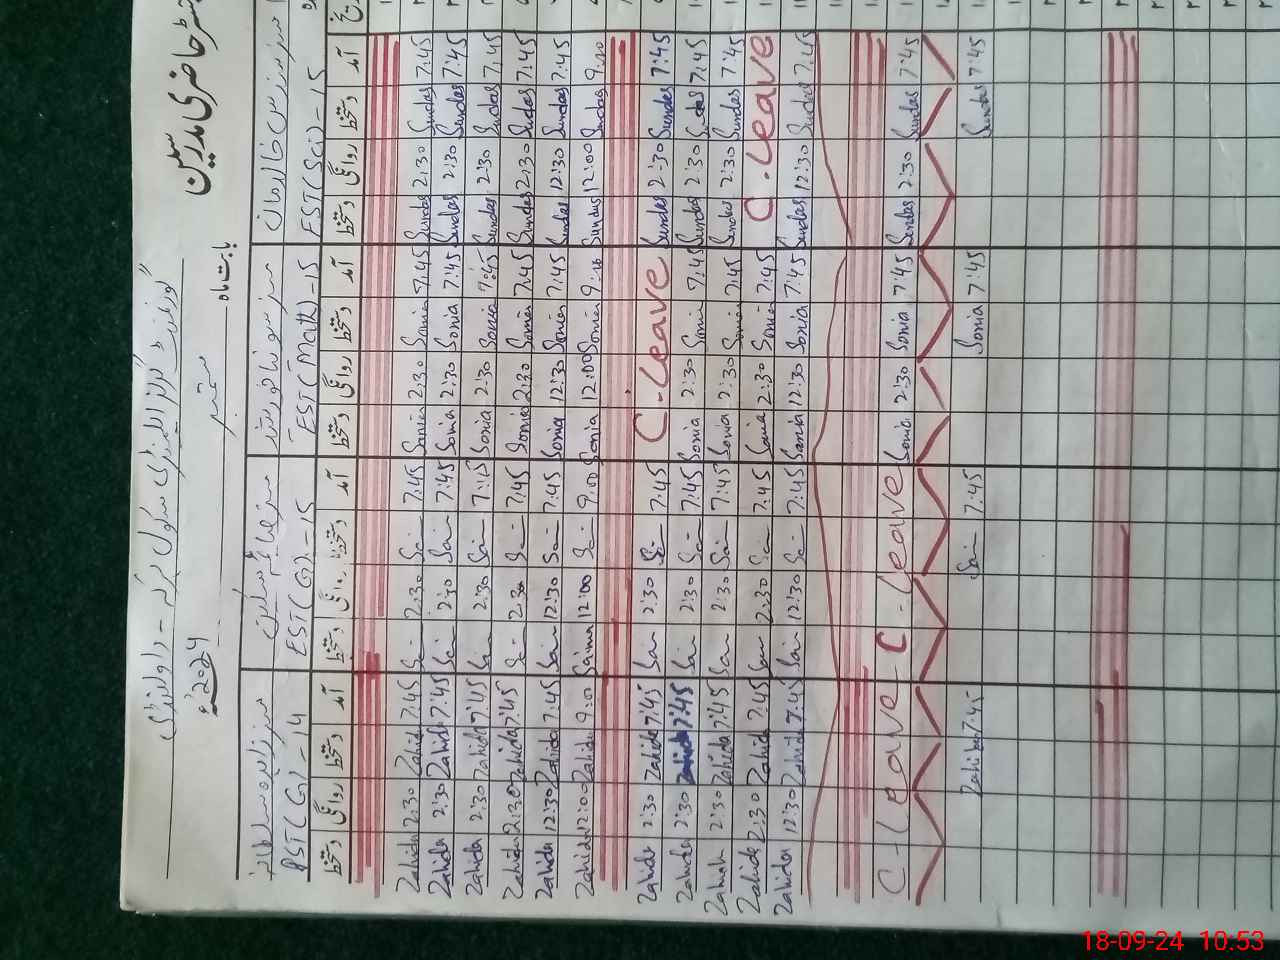 رجسٹر حاضری مدرسین
گورنمنٹ گرلز ایلیمنٹری سکول راولپنڈی
بابت ماہ ستمبر 2024ء
PST(G)-14 EST(G)-15 EST(Math)-15 EST(Sci)-15
دستخط روانگی دستخط آمد دستخط روانگی دستخط آمد دستخط روانگی دستخط آمد دستخط روانگی دستخط آمد
Zahida 2:30 Zahida 7:45 Sai 2:30 Sai 7:45 Sonia 2:30 Sonia 7:45 Sundas 2:30 Sundas 7:45
Zahida 2:30 Zahida 7:45 Sai 2:30 Sai 7:45 Sonia 2:30 Sonia 7:45 Sundas 2:30 Sundas 7:45
Zahida 2:30 Zahida 7:45 Sai 2:30 Sai 7:45 Sonia 2:30 Sonia 7:45 Sundas 2:30 Sundas 7:45
Zahida 2:30 Zahida 7:45 Sai 2:30 Sai 7:45 Sonia 2:30 Sonia 7:45 Sundas 2:30 Sundas 7:45
Zahida 12:30 Zahida 7:45 Sai 12:30 Sai 7:45 Sonia 12:30 Sonia 7:45 Sundas 12:30 Sundas 7:45
Zahida 12:00 Zahida 9:00 Saima 12:00 Sai 9:00 Sonia 12:00 Sonia 9:00 Sundus 12:00 Sundas 9:00
Zahida 2:30 Zahida 7:45 Sai 2:30 Sai 7:45 C-Leave Sundas 2:30 Sundas 7:45
Zahida 2:30 Zahida 7:45 Sai 2:30 Sai 7:45 Sonia 2:30 Sonia 7:45 Sundas 2:30 Sundas 7:45
Zahida 2:30 Zahida 7:45 Sai 2:30 Sai 7:45 Sonia 2:30 Sonia 7:45 Sundas 2:30 Sundas 7:45
Zahida 2:30 Zahida 7:45 Sai 2:30 Sai 7:45 Sonia 2:30 Sonia 7:45 C-Leave
Zahida 12:30 Zahida 7:45 Sai 12:30 Sai 7:45 Sonia 12:30 Sonia 7:45 Sundas 12:30 Sundas 7:45
C-Leave C-Leave Sonia 2:30 Sonia 7:45 Sundas 2:30 Sundas 7:45
Zahida 7:45 Sai 7:45 Sonia 7:45 Sundas 7:45
18-09-24 10:53